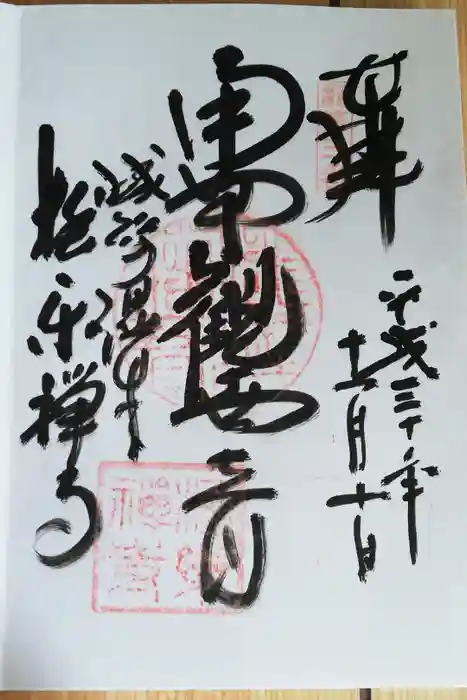 奉拝
平成三十年
十一月十日
聖観世音
城崎温泉
極楽禅寺